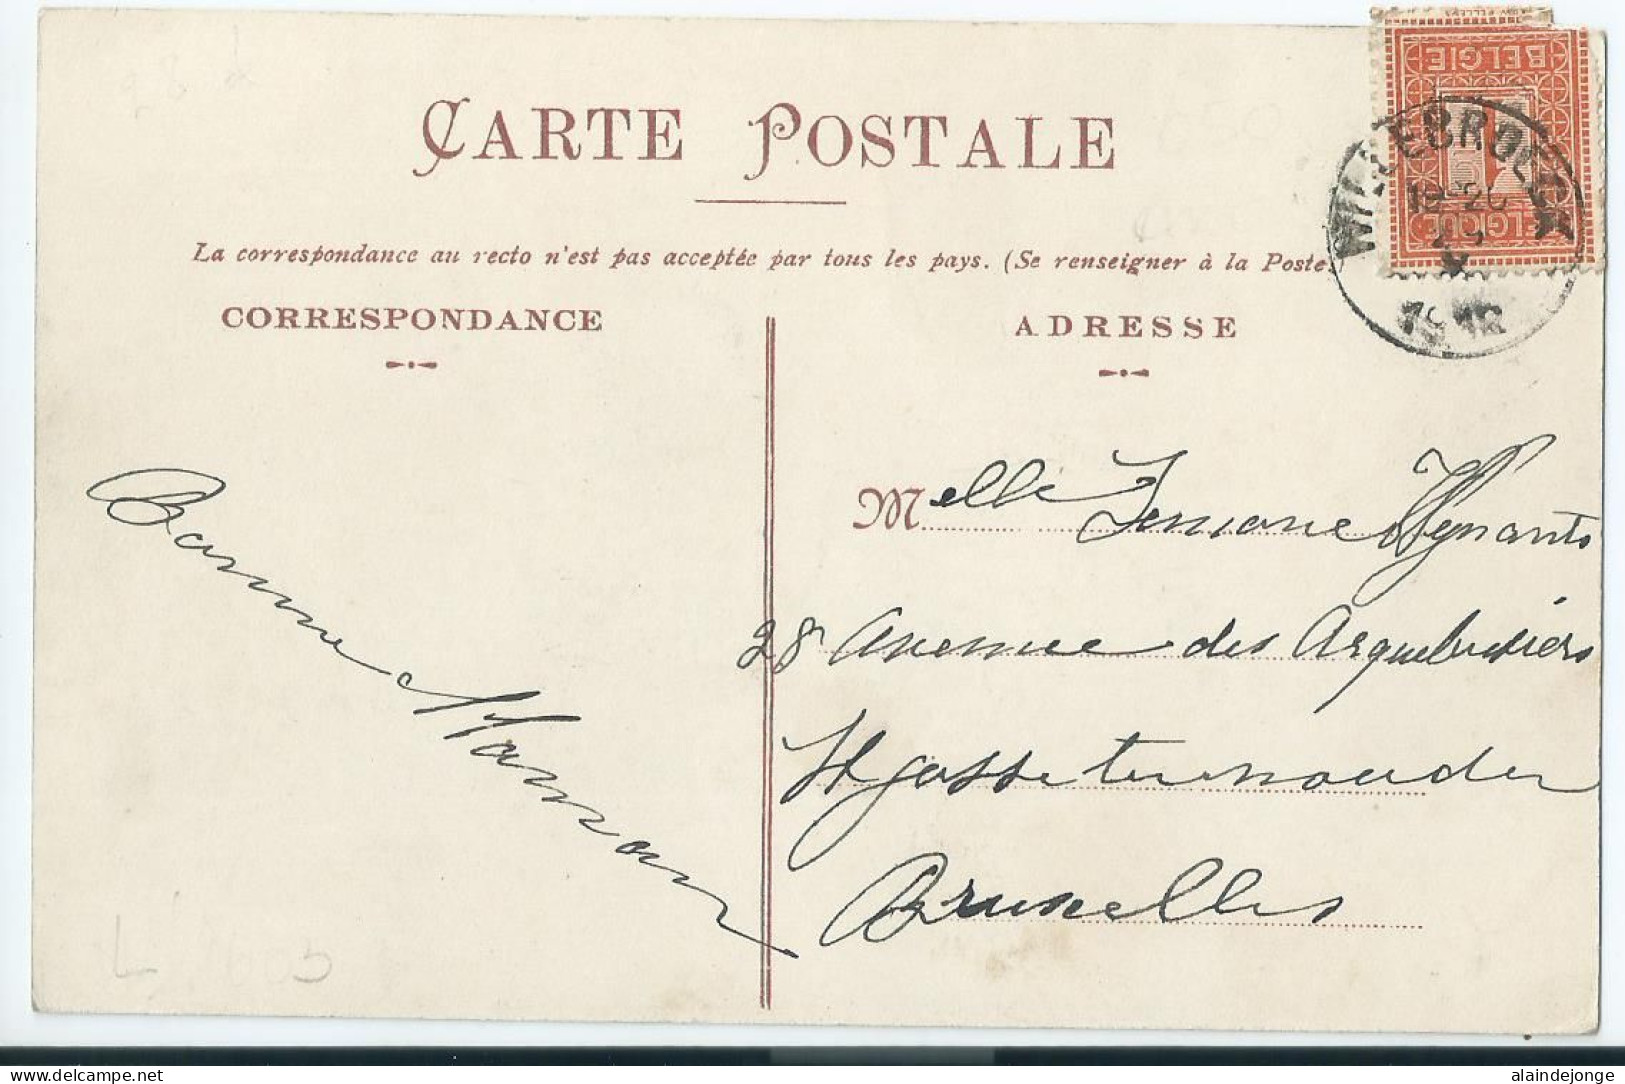 CARTE POSTALE
La correspondance au recto n'est pas acceptée par tous les pays. (Se renseigner à la Poste.
CORRESPONDANCE
ADRESSE
BELGIE
BELGIQUE
WILLEBROECK
19-20
1913
Bonne Maman
Melle Simone Wynants
28 Avenue des Arquebusiers
St Josse ten noude
Bruxelles
alaindejonge